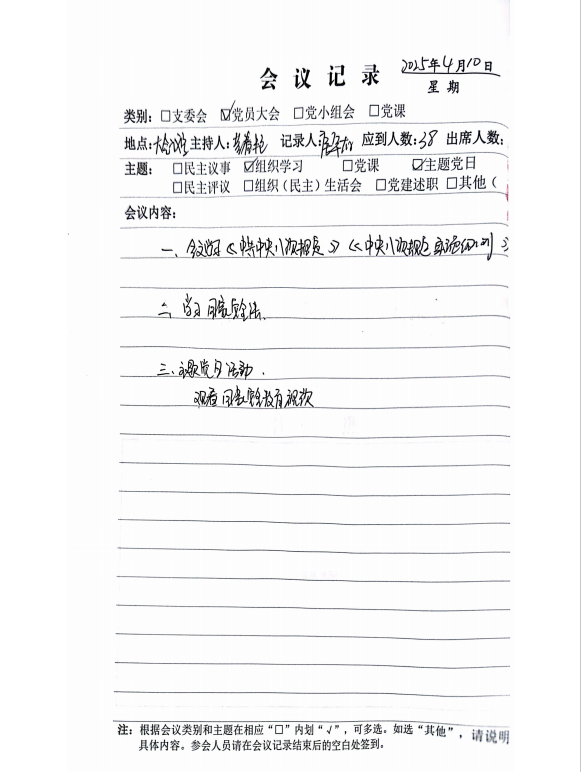 会议记录 2025年4月10日
星期
类别：□支委会 ☑党员大会 □党小组会 □党课
地点：大会议室 主持人： 记录人： 应到人数：38 出席人数：
主题： □民主议事 ☑组织学习 □党课 ☑主题党日
□民主评议 □组织（民主）生活会 □党建述职 □其他（
会议内容：
一、 《中共中央八项规定》《中央八项规定实施细则》
二、学习国家安全法.
三、主题党日活动.
观看国家安全教育视频
注：根据会议类别和主题在相应“□”内划“√”，可多选。如选“其他”，请说明
具体内容。参会人员请在会议记录结束后的空白处签到。